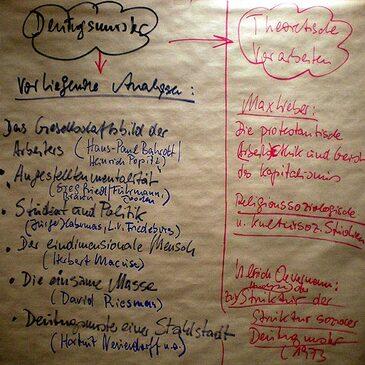 Deutungsmuster
Vorliegende Analysen:
Das Gesellschaftsbild der
Arbeiters (Hans-Paul Bahrdt/
Heinrich Popitz)
• Angestelltenmentalität
(Siegfried Braun/Fuhrmann,
• Student und Politik
(Jürgen Habermas, L.v. Friedeburg)
• Der eindimensionale Mensch
(Herbert Marcuse)
• Die einsame Masse
(David Riesman)
• Deutungsmuster einer Stahlstadt
(Hartmut u.a.)
Theoretische
Vorarbeiten
Max Weber:
Die protestantische
Arbeitsethik und Geist
des Kapitalismus
Religionssoziologische
u. kultursoz. Studien
Ulrich Oevermann:
zur Struktur der
Struktur sozialer
Deutungsmuster
(1973